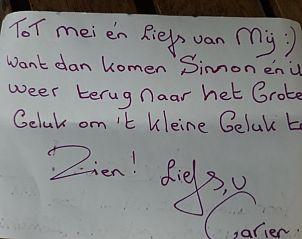 ToT mei én Liefs van Mij :)
want dan komen Simon én ik
weer terug naar het Grote
Geluk om 't kleine Geluk te
Zien! Liefs,
Marien